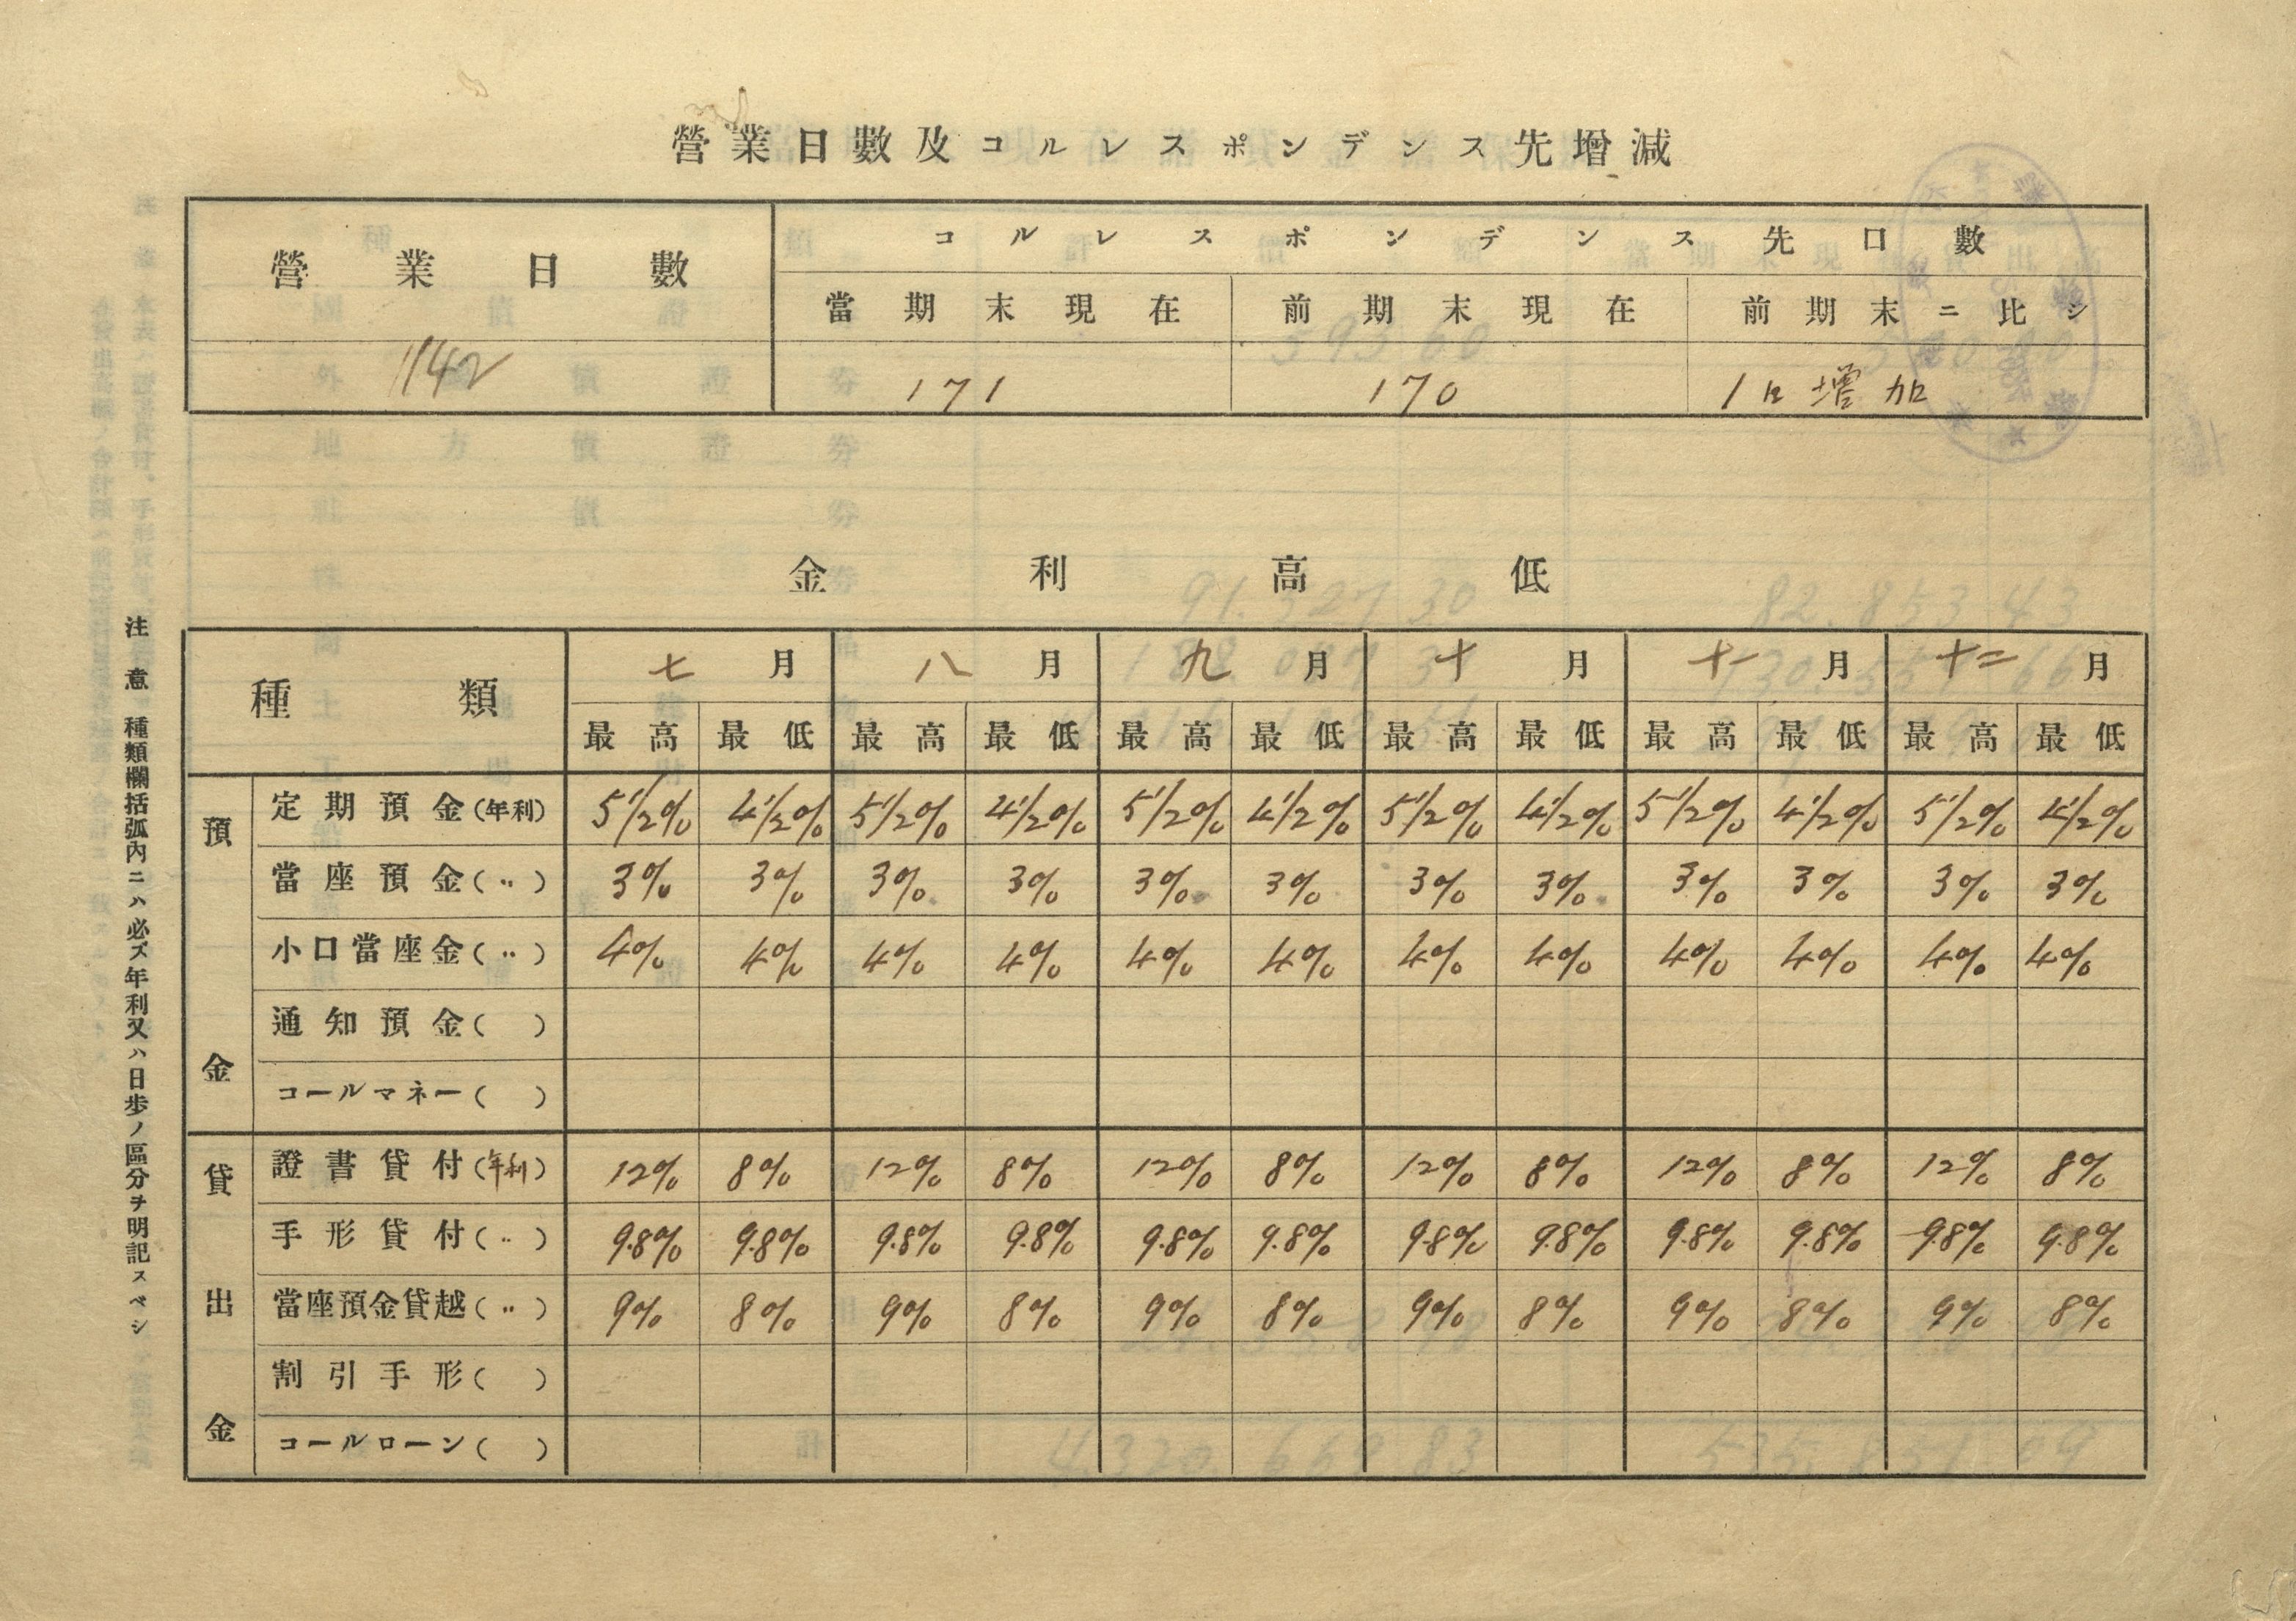 營業日數及コルレスポンデンス先增減
營業日數 コルレスポンデンス先口數
當期末現在 前期末現在 前期末ニ比シ
142 171 170 1口増加
金利高低
種類 七月 八月 九月 十月 十一月 十二月
最高 最低 最高 最低 最高 最低 最高 最低 最高 最低 最高 最低
預金
定期預金(年利) 5 1/2% 4 1/2% 5 1/2% 4 1/2% 5 1/2% 4 1/2% 5 1/2% 4 1/2% 5 1/2% 4 1/2% 5 1/2% 4 1/2%
當座預金(〃) 3% 3% 3% 3% 3% 3% 3% 3% 3% 3% 3% 3%
小口當座金(〃) 4% 4% 4% 4% 4% 4% 4% 4% 4% 4% 4% 4%
通知預金( )
コールマネー( )
貸出金
證書貸付(年利) 12% 8% 12% 8% 12% 8% 12% 8% 12% 8% 12% 8%
手形貸付(〃) 9.8% 9.8% 9.8% 9.8% 9.8% 9.8% 9.8% 9.8% 9.8% 9.8% 9.8% 9.8%
當座預金貸越(〃) 9% 8% 9% 8% 9% 8% 9% 8% 9% 8% 9% 8%
割引手形( )
コールローン( )
注意 種類欄括弧內ニハ必ズ年利又ハ日步ノ區分ヲ明記スベシ